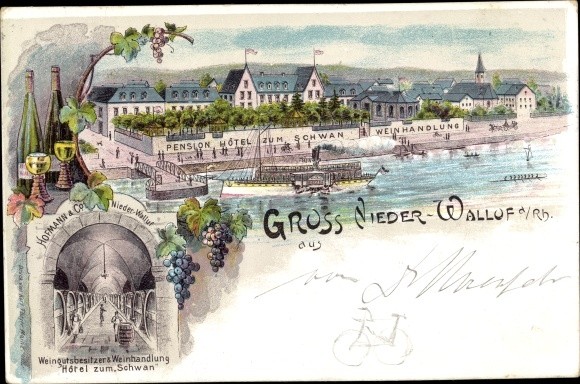 PENSION HÔTEL ZUM SCHWAN WEINHANDLUNG
GRUSS
aus
NIEDER-WALLUF a/Rh.
HOFMANN & Co Nieder-Walluf
von
Weingutsbesitzer & Weinhandlung
"Hôtel zum "Schwan"